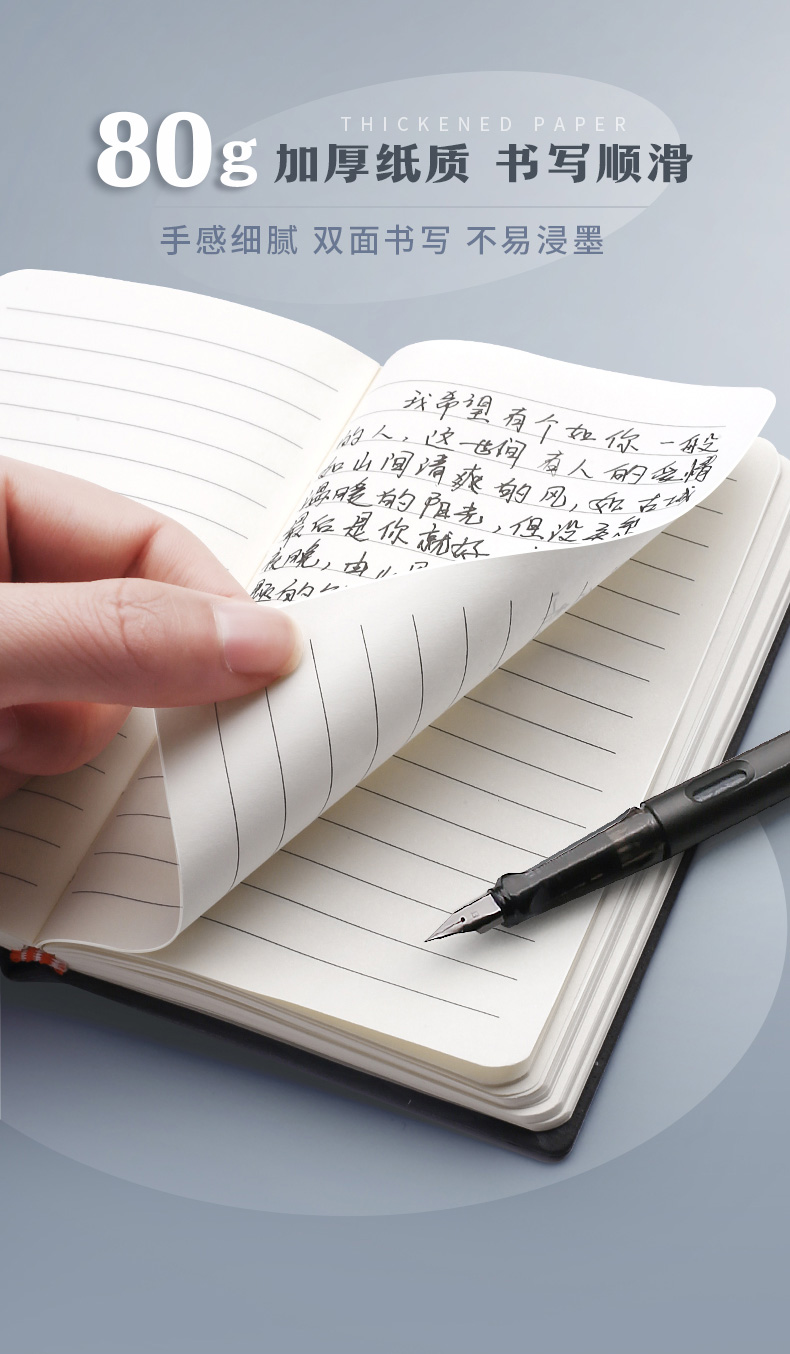 THICKENED PAPER
80g 加厚纸质 书写顺滑
手感细腻 双面书写 不易浸墨
我希望有个如你一般
的人，这世间有人的
如山间清爽的风，如古城
温暖的阳光，但没
最后是你就好
夜晚，由
的